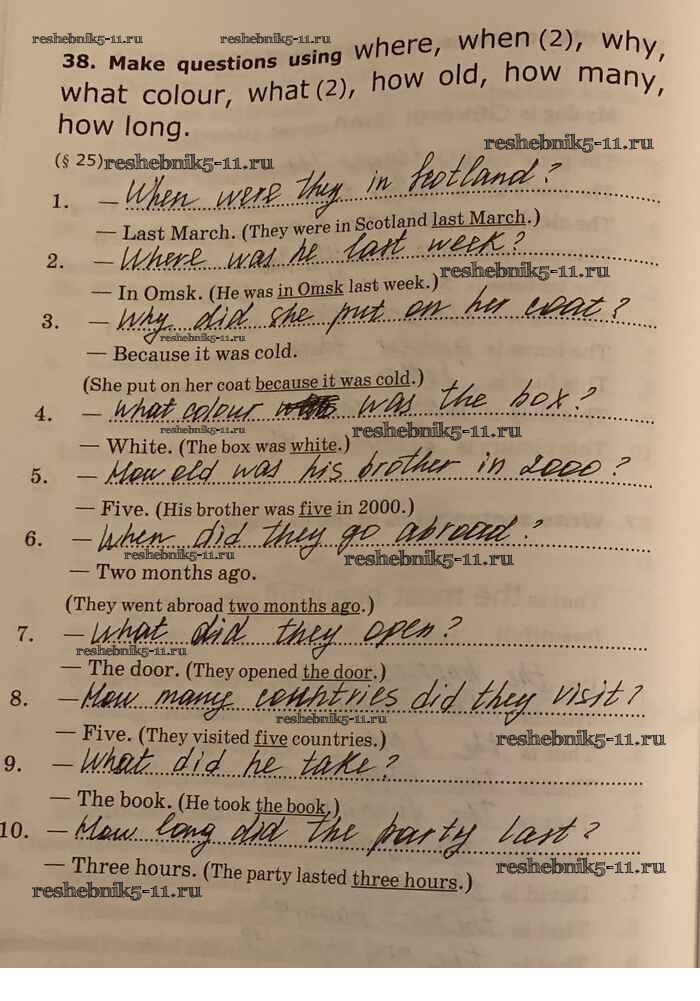 reshebnik5-11.ru reshebnik5-11.ru
38. Make questions using where, when (2), why,
what colour, what (2), how old, how many,
how long.
reshebnik5-11.ru
(§ 25) reshebnik5-11.ru
1. — When were they in Scotland?
— Last March. (They were in Scotland last March.)
2. — Where was he last week?
reshebnik5-11.ru
— In Omsk. (He was in Omsk last week.)
3. — Why did she put on her coat?
reshebnik5-11.ru
— Because it was cold.
(She put on her coat because it was cold.)
4. — What colour was the box?
reshebnik5-11.ru reshebnik5-11.ru
— White. (The box was white.)
5. — How old was his brother in 2000?
— Five. (His brother was five in 2000.)
6. — When did they go abroad?
reshebnik5-11.ru reshebnik5-11.ru
— Two months ago.
(They went abroad two months ago.)
7. — What did they open?
reshebnik5-11.ru
— The door. (They opened the door.)
8. — How many countries did they visit?
reshebnik5-11.ru
— Five. (They visited five countries.)
reshebnik5-11.ru
9. — What did he take?
— The book. (He took the book.)
10. — How long did the party last?
— Three hours. (The party lasted three hours.)
reshebnik5-11.ru reshebnik5-11.ru